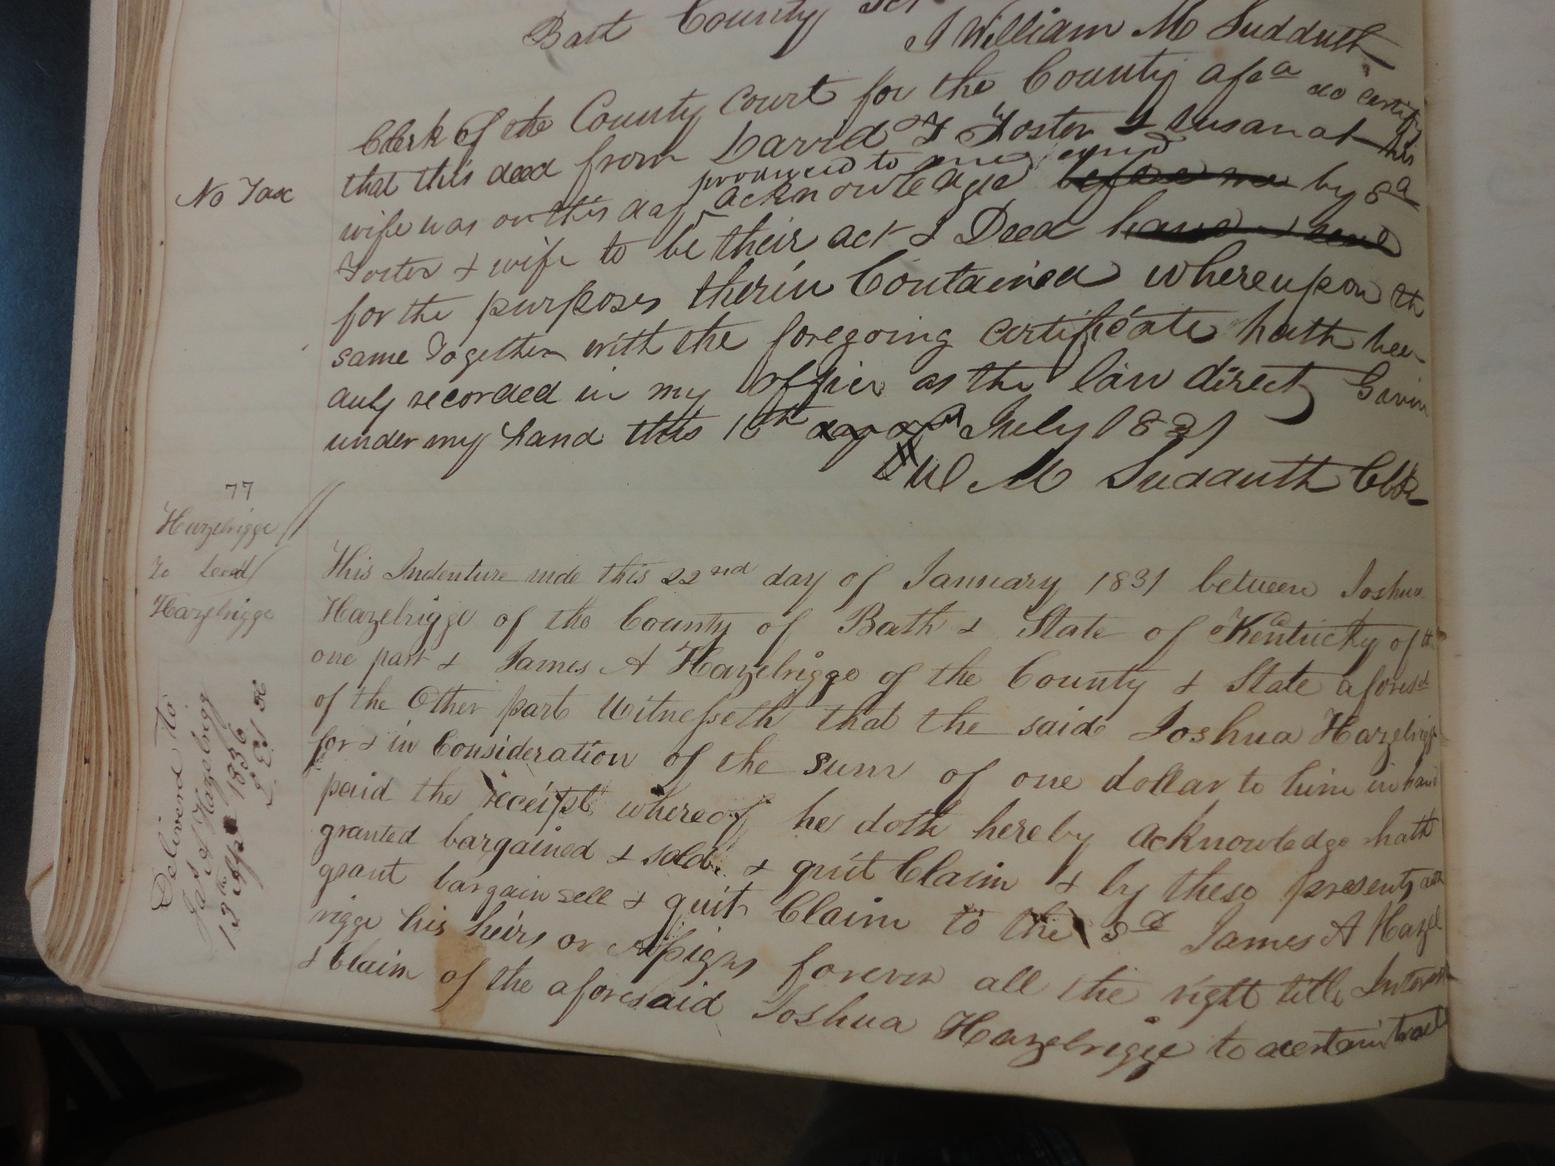 Bath County Sct
I William M Sudduth
Clerk of the County Court for the County afsa do certify
that this deed from David F Foster & Susanah his
produced to me and
No Tax
wife was on this day acknowledge before me by sa
Foster & wife to be their act & Deed hand & seal
for the purposes therein Contained whereupon the
same Together with the foregoing certificate hath bee
duly recorded in my office as the law direct Given
under my hand this 16th day of July 1831
W M Sudduth Clk
77
Hazelrigge
To Deed
Hazelrigge
This Indenture made this 22nd day of January 1831 between Joshua
Hazelrigge of the County of Bath & State of Kentucky of th
one part & James A Hazelrigge of the County & State aforesd
of the Other part Witnesseth that the said Joshua Hazelrigge
for & in Consideration of the sum of one dollar to him in hand
paid the receipt whereof he doth hereby acknowledge hath
granted bargained & sold & quit Claim & by these presents doth
grant bargain sell & quit Claim to the sd James A Hazel
rigge his heirs or Assigns forever all the right title Interest
& Claim of the aforesaid Joshua Hazelrigge to a certain tract
Delivered to
Jas A Hazelrigg
13th Apl 1836